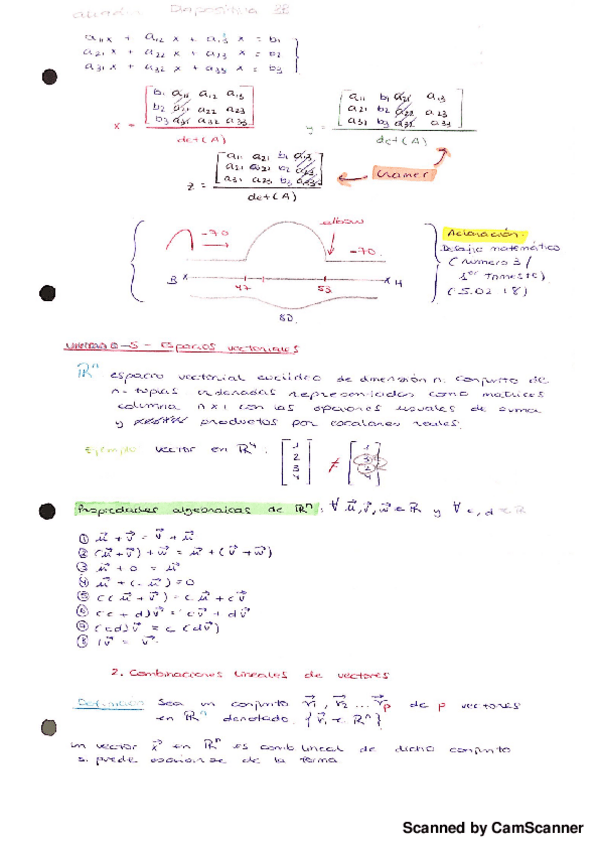 añadir Diapositiva 38
a11x + a12 x + a13 x = b1
a21x + a22 x + a23 x = b2
a31x + a32 x + a33 x = b3
b1 a11 a12 a13
b2 a21 a22 a23
b3 a31 a32 a33
x =
det(A)
a11 b1 a21 a13
a21 b2 a22 a23
a31 b3 a32 a33
y =
det(A)
a11 a21 b1 a13
a21 a22 b2 a23
a31 a23 b3 a33
z =
det(A)
Cramer
-70
elbow
-70
B
47
53
H
BD.
Aclaración:
Desafío matemático
(número 3/
1er Trimestre)
(5.02.18)
Unidad-5 - Espacios vectoriales
ℝⁿ espacio vectorial euclídeo de dimensión n. Conjunto de
n-tuplas ordenadas representadas como matrices
columna n×1 con las operaciones usuales de suma
y productos por escalares reales.
Ejemplo: vector en ℝ⁴:
1
2
3
4
≠
1
3
2
4
Propiedades algebraicas de ℝⁿ: ∀ u⃗,v⃗,w⃗ ∈ ℝ y ∀ c,d ∈ ℝ
① u⃗ + v⃗ = v⃗ + u⃗
② (u⃗+v⃗) + w⃗ = u⃗ + (v⃗ + w⃗)
③ u⃗ + 0 = u⃗
④ u⃗ + (-u⃗) = 0
⑤ c(u⃗ + v⃗) = c u⃗ + c v⃗
⑥ (c + d)v⃗ = cv⃗ + dv⃗
⑦ (cd)v⃗ = c (dv⃗)
⑧ 1v⃗ = v⃗
2. Combinaciones lineales de vectores
Definición: Sea un conjunto v⃗1, v⃗2 ... v⃗p de p vectores
en ℝⁿ denotado. {v⃗i ∈ ℝⁿ}
Un vector x⃗ en ℝⁿ es comb lineal de dicho conjunto
si puede escribirse de la forma
Scanned by CamScanner